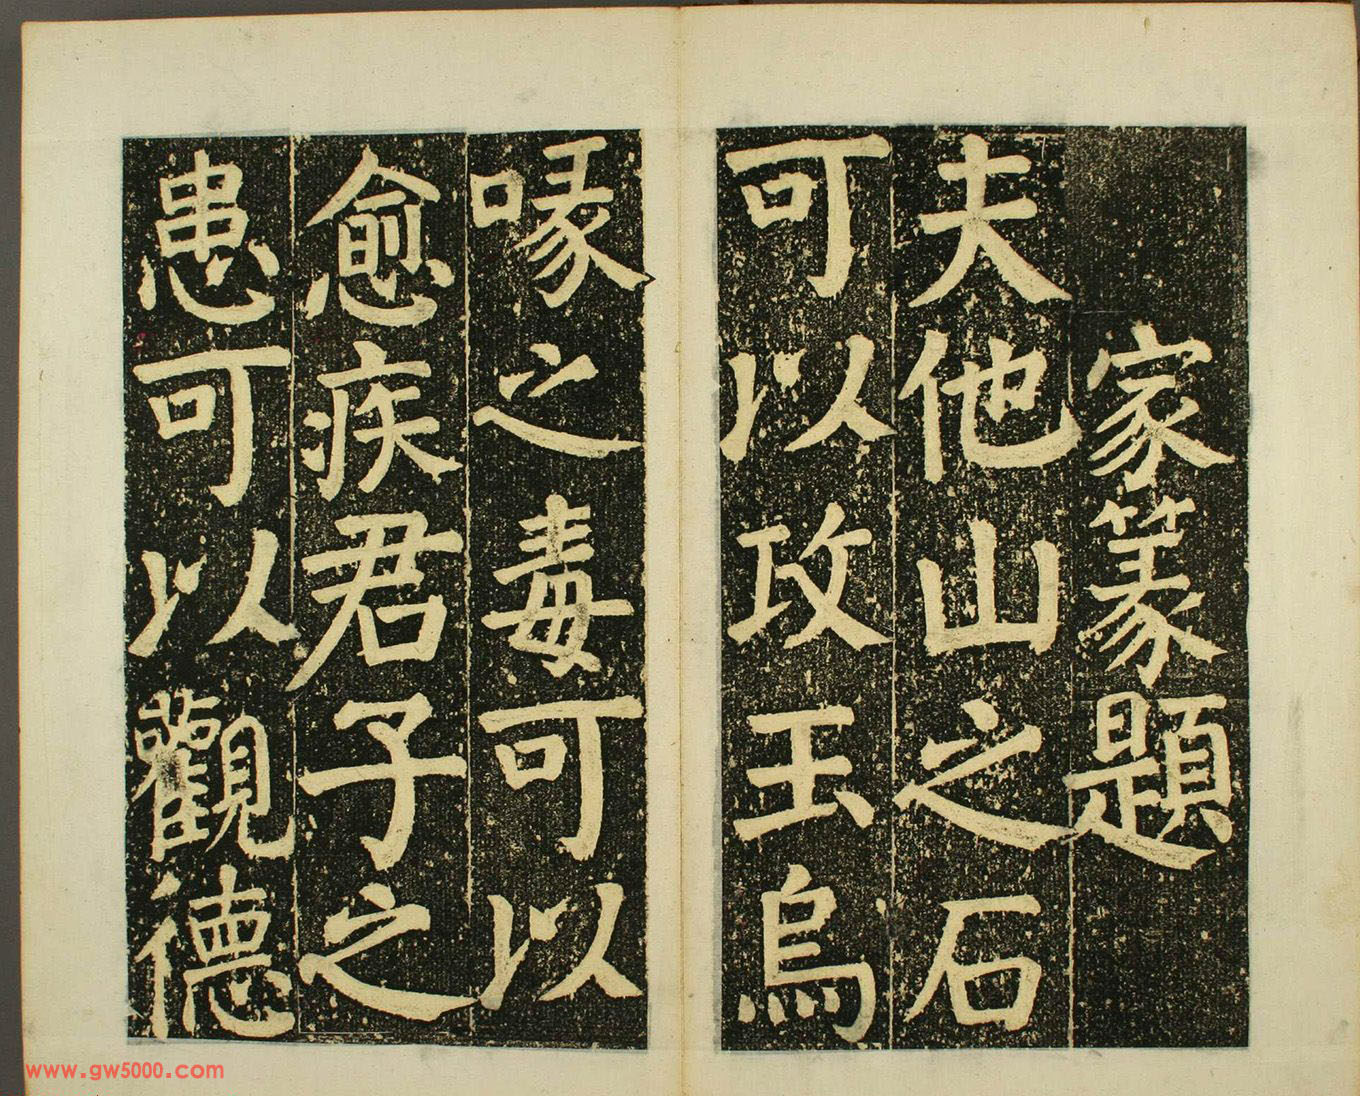 家篆題
夫他山之石
可以攻玉烏
喙之毒可以
愈疾君子之
患可以觀德
www.gw5000.com